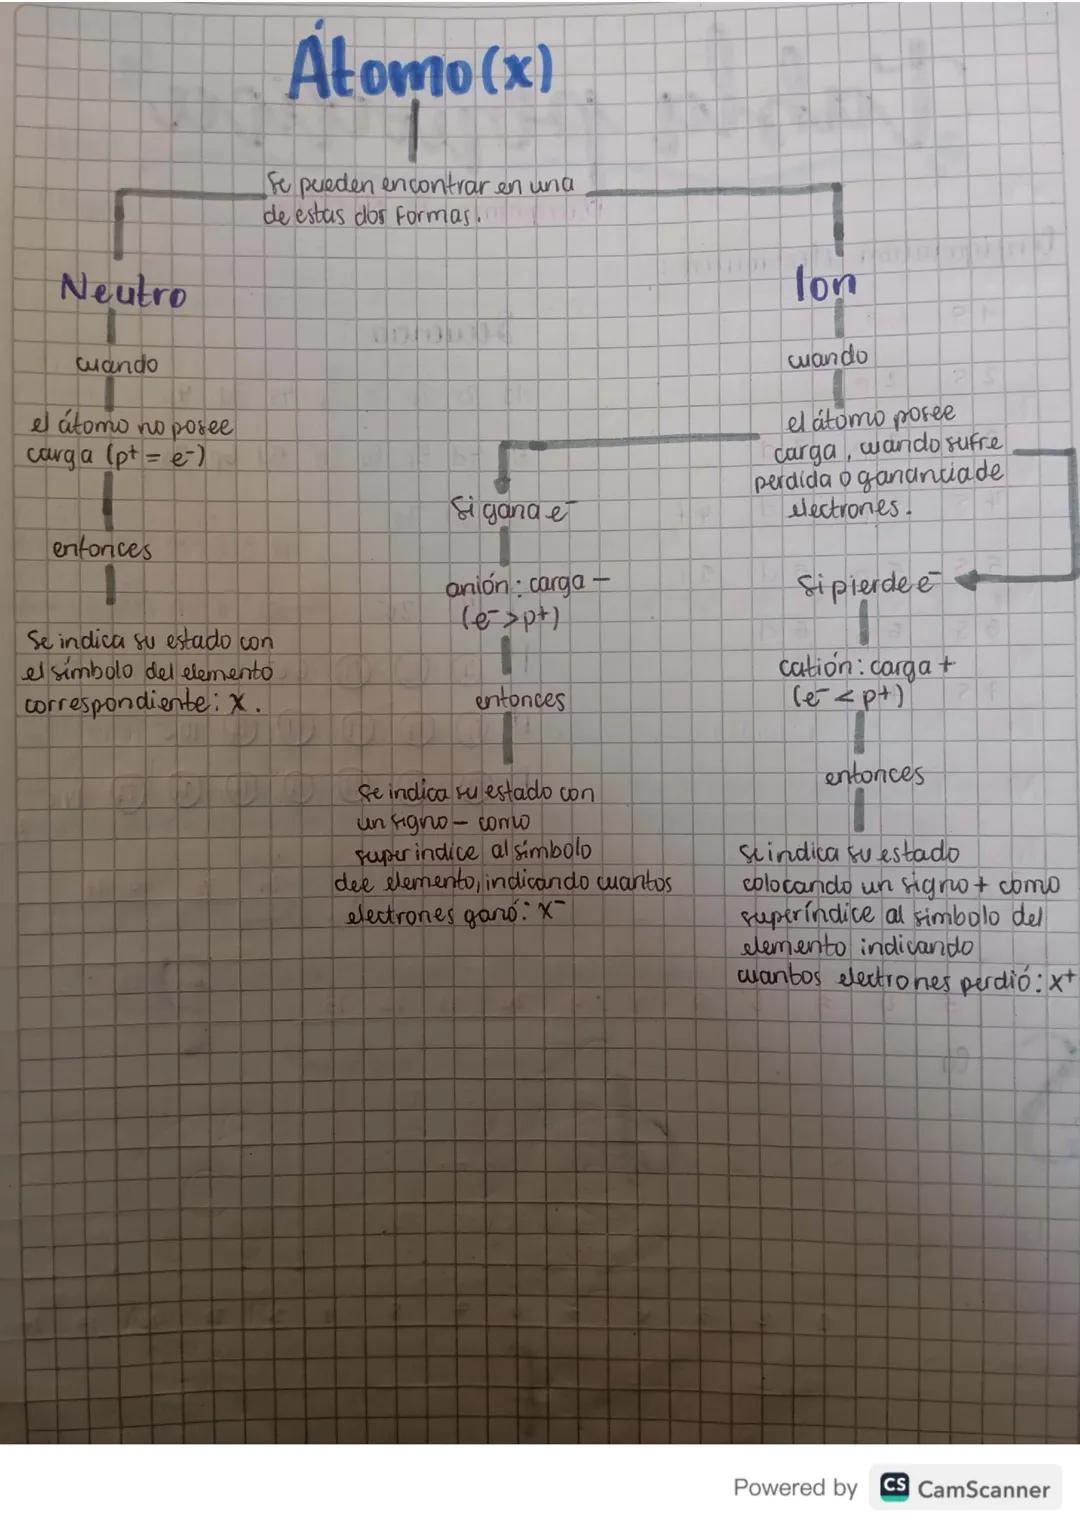 Átomo (x)
Se pueden encontrar en una
de estas dos formas.
Neutro
cuando
el átomo no posee
carga (p+ = e-)
entonces
Se indica su estado con
el símbolo del elemento
correspondiente: X.
Ion
cuando
el átomo posee
carga, cuando sufre
perdida o ganancia de
electrones.
Si gana e-
anión: carga -
(e- > p+)
entonces
Se indica su estado con
un signo - como
superindice al símbolo
del elemento, indicando cuantos
electrones ganó: X-
Si pierde e-
catión: carga +
(e- < p+)
entonces
Se indica su estado
colocando un signo + como
superíndice al simbolo del
elemento indicando
cuantos electrones perdió: X+
Powered by CS CamScanner